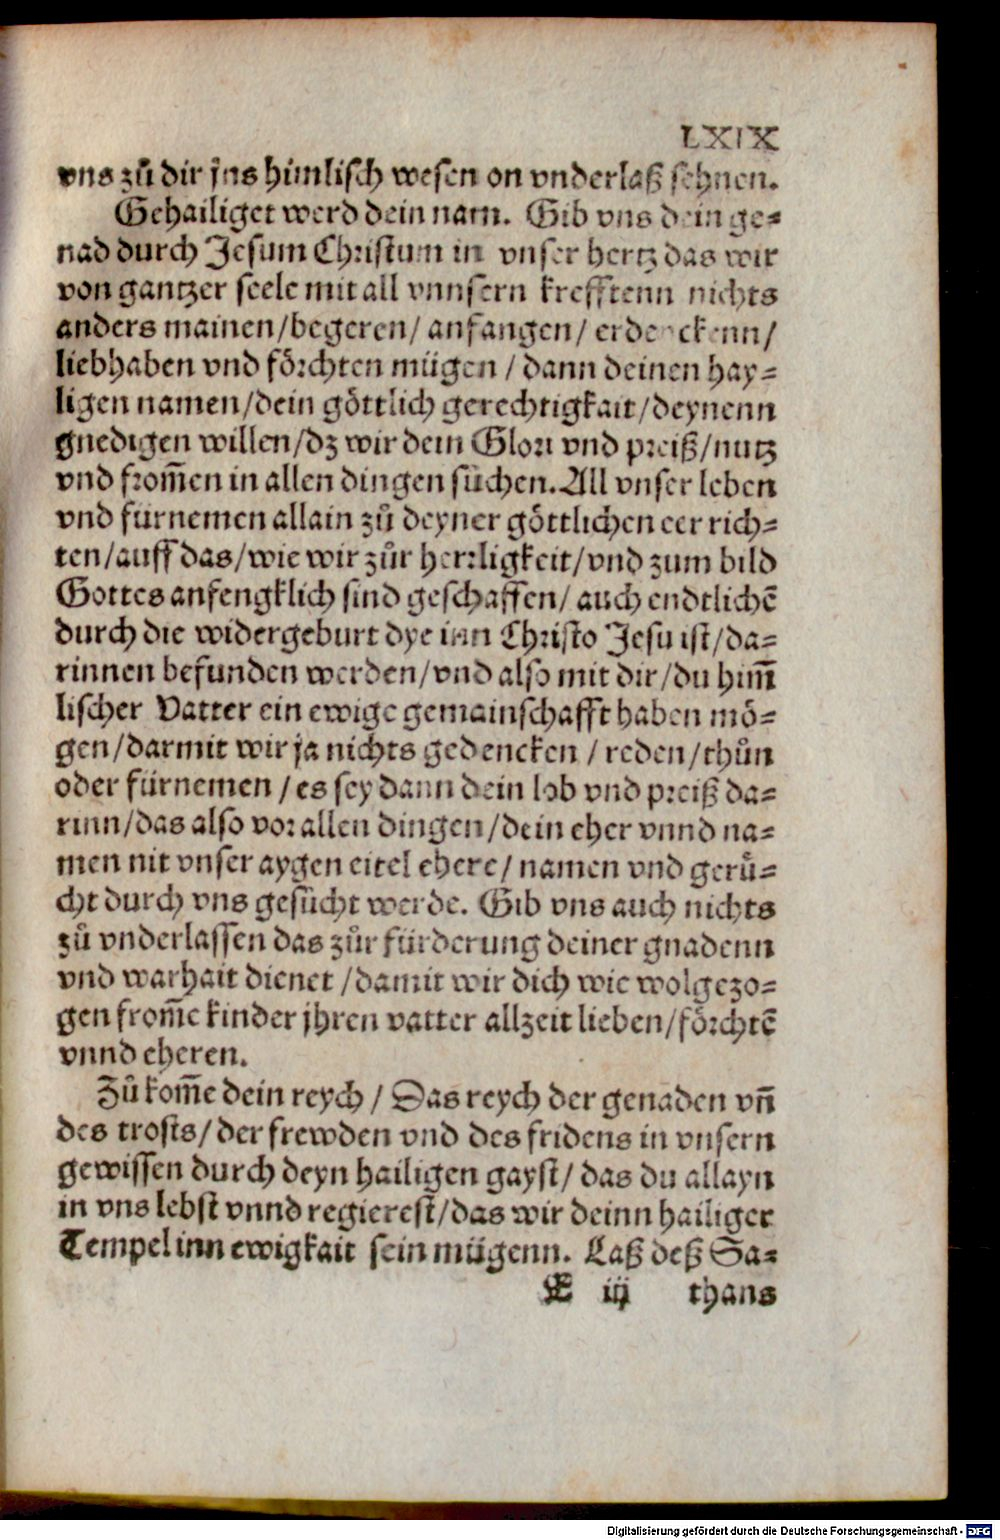 LXIX
vns zů dir jns himlisch wesen on vnderlaß sehnen.
Gehailiget werd dein nam. Gib vns dein ge⸗
nad durch Jesum Christum in vnser hertz das wir
von gantzer seele mit all vnnsern krefftenn nichts
anders mainen/begeren/ anfangen/ erdenckenn/
liebhaben vnd förchten mügen / dann deinen hay⸗
ligen namen/dein göttlich gerechtigkait/deynenn
gnedigen willen/dz wir dein Glori vnd preiß/nutz
vnd from̄en in allen dingen süchen. All vnser leben
vnd fürnemen allain zů deyner göttlichen eer rich⸗
ten/auff das/wie wir zůr herrligkeit/vnd zum bild
Gottes anfengklich sind geschaffen/ auch endtlichē
durch die widergeburt dye inn Christo Jesu ist/da⸗
rinnen befunden werden/vnd also mit dir/du him̄
lischer Vatter ein ewige gemainschafft haben mö⸗
gen/darmit wir ja nichts gedencken / reden/thůn
oder fürnemen / es sey dann dein lob vnd preiß da⸗
rinn/das also vor allen dingen/dein eher vnnd na⸗
men nit vnser aygen eitel ehere/ namen vnd gerů⸗
cht durch vns gesücht werde. Gib vns auch nichts
zů vnderlassen das zůr fürderung deiner gnadenn
vnd warhait dienet /damit wir dich wie wolgezo⸗
gen from̄e kinder jhren vatter allzeit lieben/förchtē
vnnd eheren.
Zů kom̄e dein reych / Das reych der genaden vn̄
des trosts/der frewden vnd des fridens in vnsern
gewissen durch deyn hailigen gayst/ das du allayn
in vns lebst vnnd regierest/das wir deinn hailiger
Tempel inn ewigkait sein mügenn. Laß deß Sa⸗
K iij thans
Digitalisierung gefördert durch die Deutsche Forschungsgemeinschaft - DFG